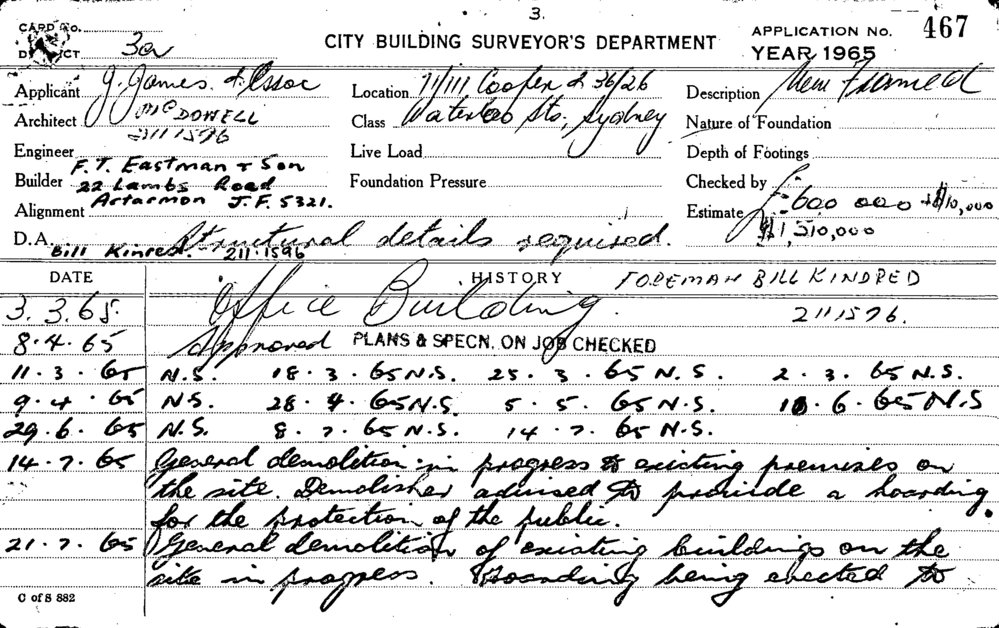 3.
CARD NO.
DISTRICT 3a
CITY BUILDING SURVEYOR'S DEPARTMENT
APPLICATION No. 467
YEAR 1965
Applicant J. James & Assoc
Location 7/111 Cooper & 36/26
Waterloo Sts, Sydney
Description New Framed
Architect McDOWELL
2111596
Class
Nature of Foundation
Engineer
Live Load
Depth of Footings
Builder F. T. Eastman & Son
22 Lambs Road
Artarmon J.F. 5321.
Foundation Pressure
Checked by
Alignment
Estimate £600 000 + $10,000
$1,510,000
D.A. Structural details required.
Bill Kinred. 211.1596
DATE HISTORY FOREMAN BILL KINDRED
3.3.65. Office Building. 2111596.
8.4.65 Approved PLANS & SPECN. ON JOB CHECKED
11.3.65 N.S. 18.3.65 N.S. 25.3.65 N.S. 2.3.65 N.S.
9.4.65 N.S. 28.4.65 N.S. 5.5.65 N.S. 16.6.65 N.S
29.6.65 N.S. 8.7.65 N.S. 14.7.65 N.S.
14.7.65 General demolition in progress to existing premises on
the site. Demolisher advised to provide a hoarding
for the protection of the public.
21.7.65 General demolition of existing buildings on the
site in progress. Hoarding being erected to
C of S 882